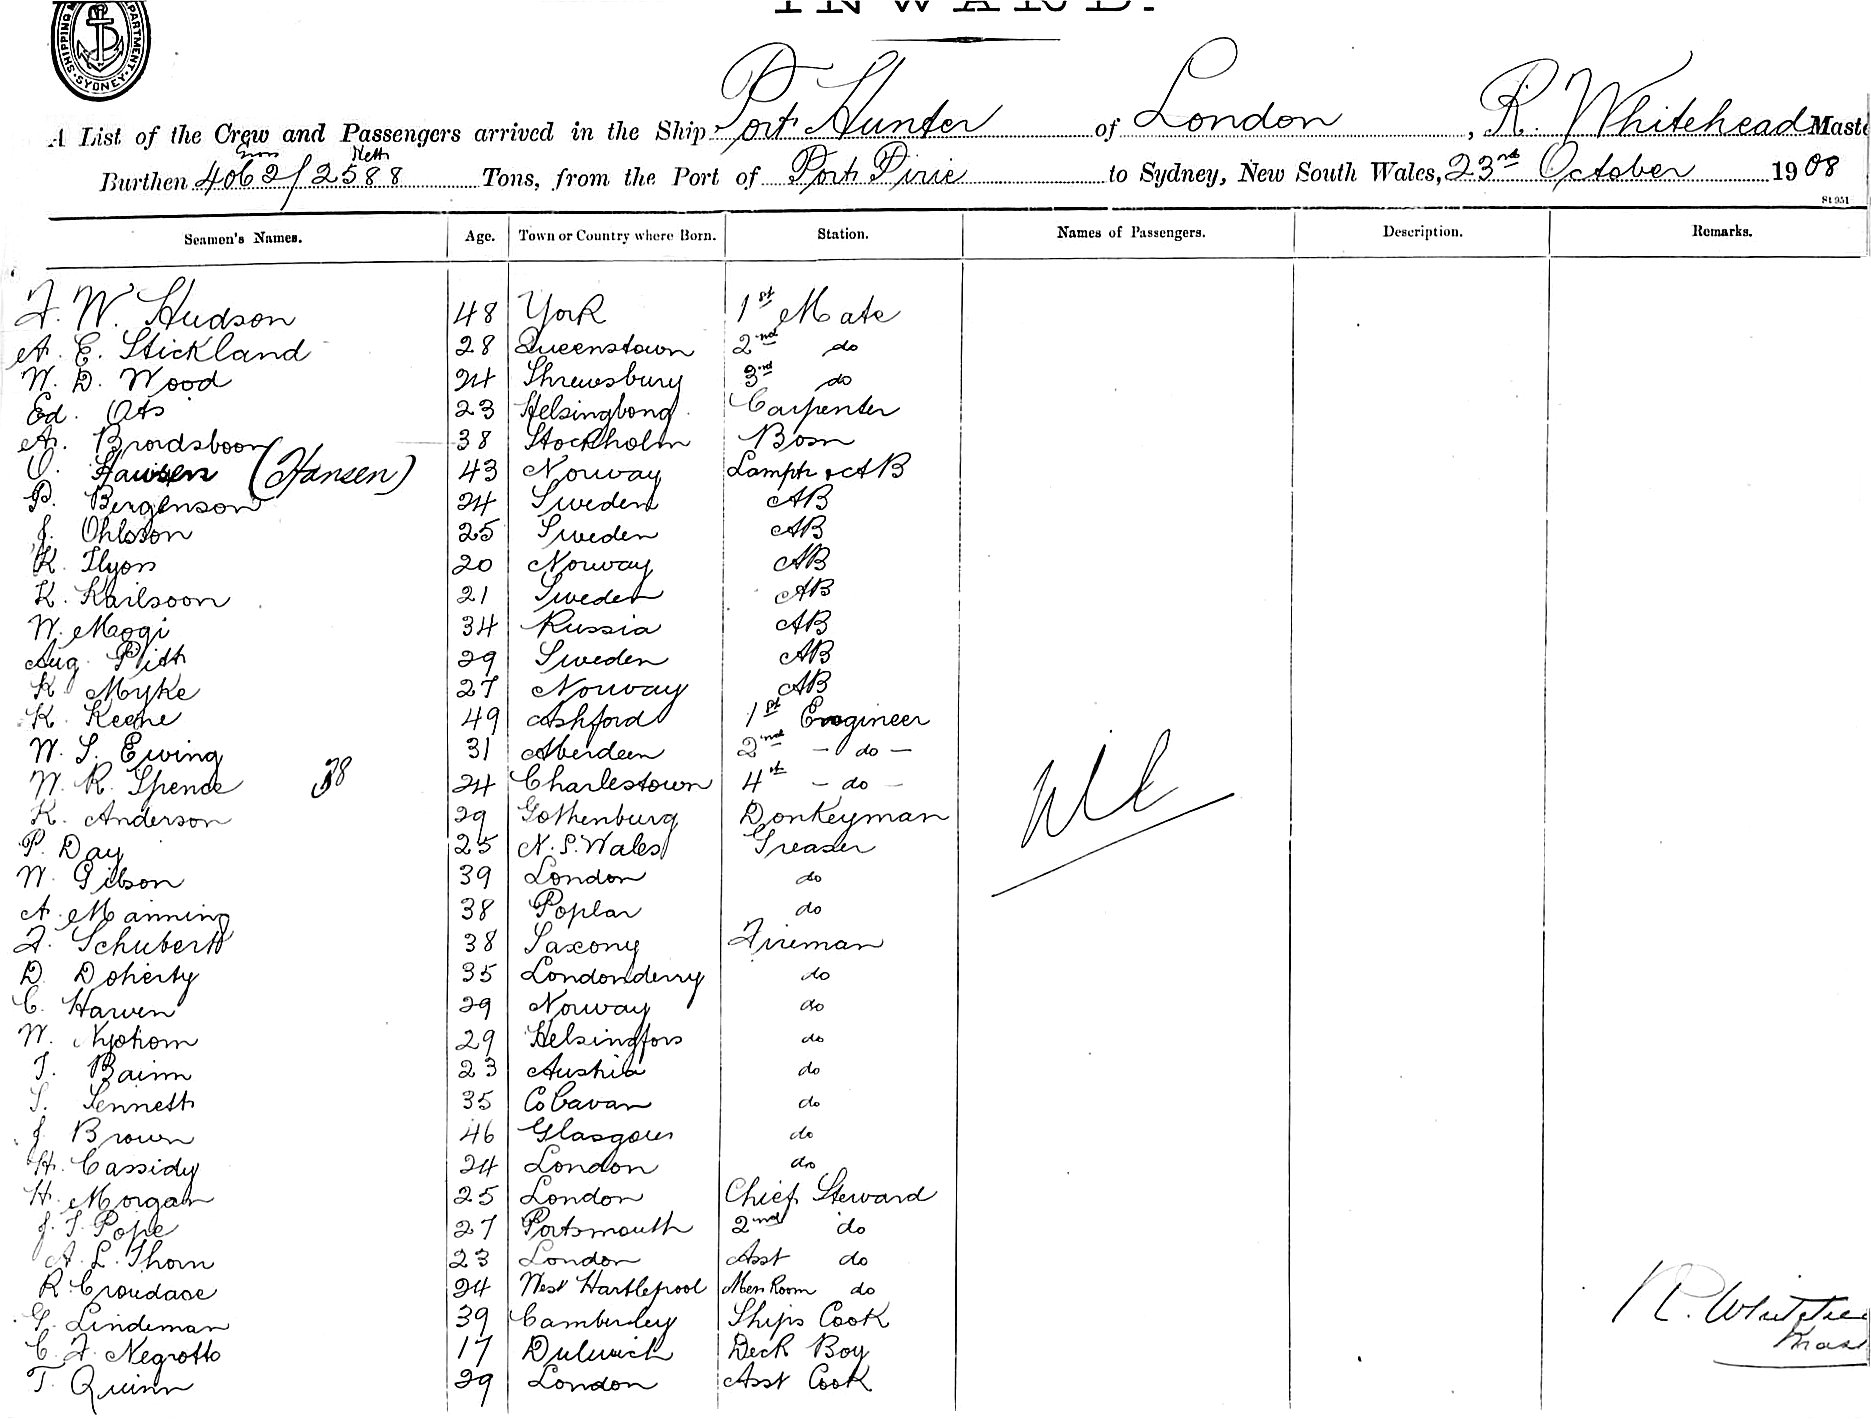 INWARD.
SHIPPING DEPARTMENT SYDNEY
A List of the Crew and Passengers arrived in the Ship Port Hunter of London, R. Whitehead Maste
Gross Nett
Burthen 4062/2588 Tons, from the Port of Port Pirie to Sydney, New South Wales, 23rd October 1908
St 951
Seamen's Names. Age. Town or Country where Born. Station. Names of Passengers. Description. Remarks.
F. W. Hudson 48 York 1st Mate
A. E. Stickland 28 Queenstown 2nd do
W. D. Wood 24 Shrewsbury 3rd do
Ed. Ats 23 Helsingborg Carpenter
A. 38 Stockholm Bosn
O. Hansen (Hansen) 43 Norway Lamptr & AB
B. Bergenson 24 Sweden AB
J. Ohlsson 25 Sweden AB
K. 20 Norway AB
K. Kailsoon 21 Sweden AB
W. Mogi 34 Russia AB
Aug. 29 Sweden AB
K Myke 27 Norway AB
K. Keene 49 Ashford 1st Engineer
W. S. Ewing 31 Aberdeen 2nd - do -
W. R. Spence 38 24 Charlestown 4th - do -
K. Anderson 29 Gothenburg Donkeyman
P. Day 25 N. S. Wales Greaser
W. Gibson 39 London do
A. Manning 38 Poplar do
F. Schubert 38 Saxony Fireman
D. Doherty 35 Londonderry do
C. Harven 29 Norway do
W. 29 Helsingfors do
T. Bainn 23 Austria do
S. Sennett 35 Co Cavan do
J. Brown 46 Glasgow do
H. Cassidy 24 London do
H. Morgan 25 London Chief Steward
J. S. Pope 27 Portsmouth 2nd do
A. L. Thorn 23 London Asst do
R. Croudace 24 West Hartlepool Mess Room do
G. Lindeman 39 Camberley Ships Cook
C. F. Negrotto 17 Dulwich Deck Boy
T. Quinn 29 London Asst Cook
Nil
R. Whitehea
Mast